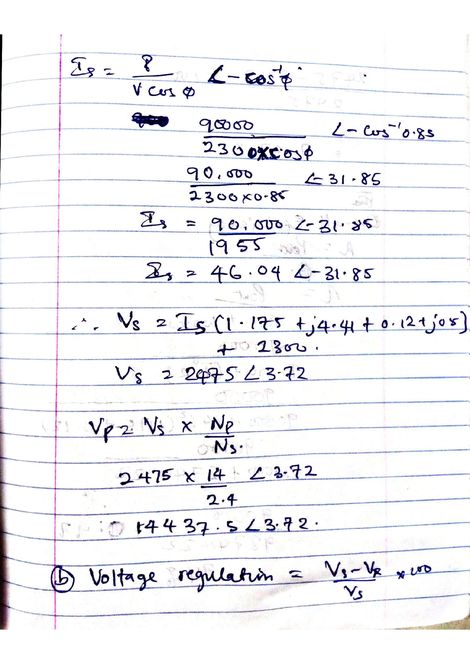 I_s = P / (V cos φ) ∠-cos⁻¹φ
90000 / (2300 x cos φ) ∠-cos⁻¹0.85
90.000 / (2300 x 0.85) ∠-31.85
I_s = 90.000 ∠-31.85 / 1955
I_s = 46.04 ∠-31.85
∴ V_s = I_s (1.175 + j4.41 + 0.12 + j05)
+ 2300.
V_s = 2475 ∠3.72
V_p = V_s x N_p / N_s.
2475 x 14 / 2.4 ∠3.72
14437.5 ∠3.72.
(b) Voltage regulation = (V_s - V_R) / V_s x 100